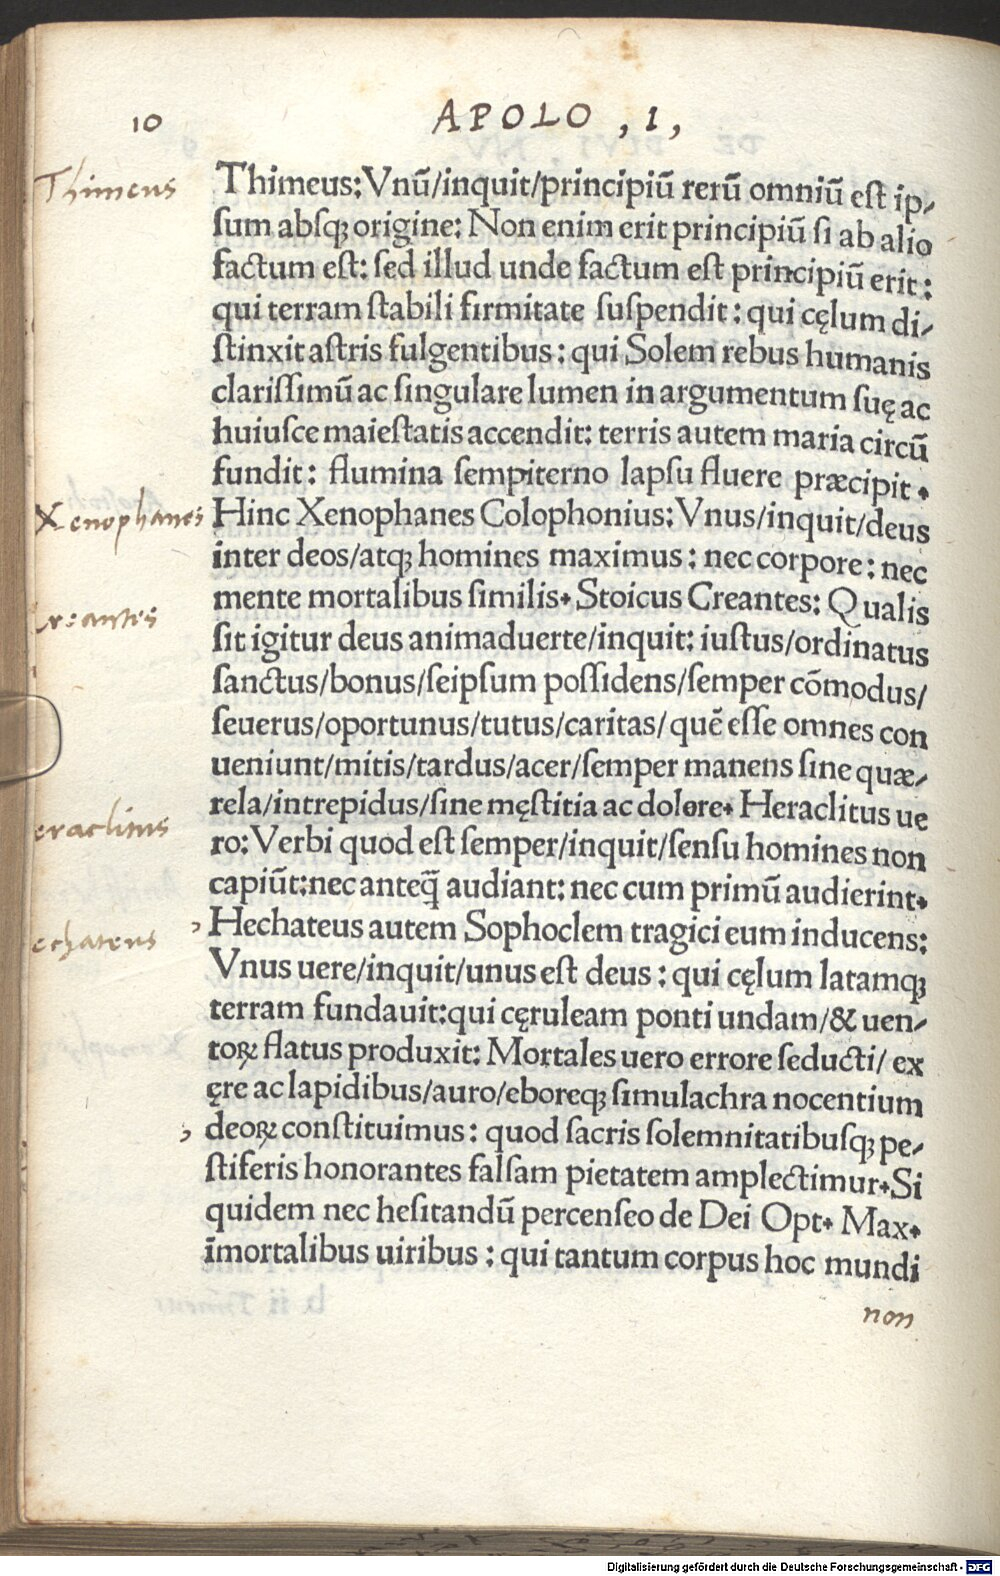 10
APOLO , I,
Thimeus
Thimeus: Vnū/inquit/principiū rerū omniū est ip-
sum absqꝫ origine: Non enim erit principiū si ab alio
factum est: sed illud unde factum est principiū erit:
qui terram stabili firmitate suspendit: qui cęlum di-
stinxit astris fulgentibus: qui Solem rebus humanis
clarissimū ac singulare lumen in argumentum suę ac
huiusce maiestatis accendit: terris autem maria circū
fundit: flumina sempiterno lapsu fluere præcipit.
Xenophanes
Hinc Xenophanes Colophonius: Vnus/inquit/deus
inter deos/atqꝫ homines maximus: nec corpore: nec
mente mortalibus similis. Stoicus Creantes: Qualis
reantes
sit igitur deus animaduerte/inquit: iustus/ordinatus
sanctus/bonus/seipsum possidens/semper cōmodus/
seuerus/oportunus/tutus/caritas/quē esse omnes con
ueniunt/mitis/tardus/acer/semper manens sine quæ-
rela/intrepidus/sine męstitia ac dolore. Heraclitus ue
eraclitus
ro: Verbi quod est semper/inquit/sensu homines non
capiūt: nec anteq̄ audiant: nec cum primū audierint.
, Hechateus autem Sophoclem tragici eum inducens:
echateus
Vnus uere/inquit/unus est deus: qui cęlum latamqꝫ
terram fundauit: qui cęruleam ponti undam/& uen-
toꝝ flatus produxit: Mortales uero errore seducti/ ex
ęre ac lapidibus/auro/eboreqꝫ simulachra nocentium
, deoꝝ constituimus: quod sacris solemnitatibusqꝫ pe-
stiferis honorantes falsam pietatem amplectimur. Si
quidem nec hesitandū percenseo de Dei Opt. Max.
īmortalibus uiribus: qui tantum corpus hoc mundi
non
Digitalisierung gefördert durch die Deutsche Forschungsgemeinschaft - DFG